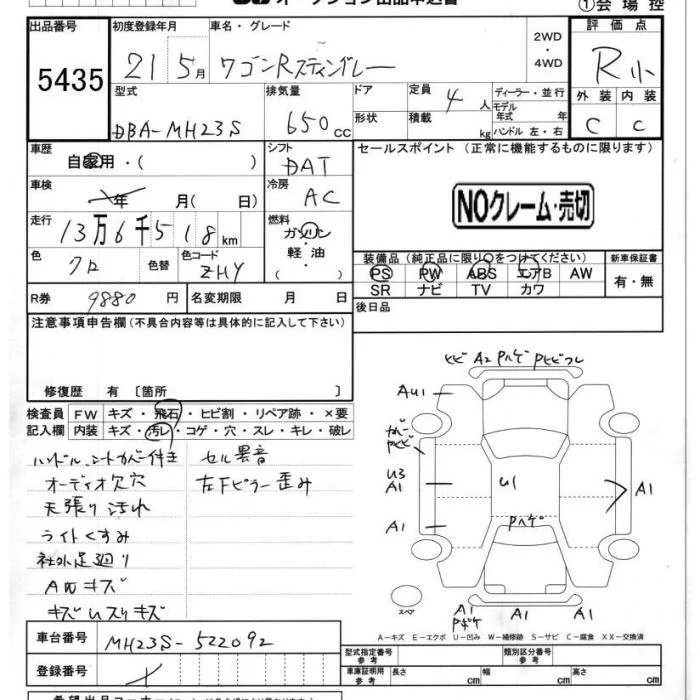 オークション出品申込書
①会場控
出品番号 5435
初度登録年月 21 5月
車名・グレード ワゴンRスティングレー
2WD・4WD
評価点 R小
外装 C 内装 C
型式 DBA-MH23S
排気量 650cc
ドア 形状
定員 4人
積載 kg
ディーラー・並行
モデル年式 年
ハンドル 左・右
車歴 自家用・( )
シフト DAT
セールスポイント (正常に機能するものに限ります)
車検 年 月( 日)
冷房 AC
NOクレーム・売切
走行 13万6千518km
燃料 ガソリン 軽・油
色 クロ 色替 色コード ZHY
装備品(純正品に限り○をつけてください)
新車保証書 有・無
PS PW ABS エアB AW
SR ナビ TV カワ
R券 9880円
名変期限 月 日
後日品
注意事項申告欄(不具合内容等は具体的に記入して下さい)
修復歴 有〔箇所 〕
検査員記入欄
FW キズ・飛石・ヒビ割・リペア跡・×要
内装 キズ・汚レ・コゲ・穴・スレ・キレ・破レ
ハンドル、シートカバー付き
オーディオ欠穴
天張り汚れ
ライトくすみ
社外足廻り
AWキズ
キズUスリキズ
セル異音
左Fピラー歪み
ヒビ A2 Pハゲ Pヒビワレ
AU1
U3
A1
A1
U1
Pハゲ
A1
A1
Pボケ
A1
スペア
A−キズ E−エクボ U−凹み W−補修跡 S−サビ C−腐食 XX−交換済
車台番号 MH23S-522092
登録番号
型式指定番号 参考
類別区分番号 参考
車庫証明用 参考
長さ cm 幅 cm 高さ cm